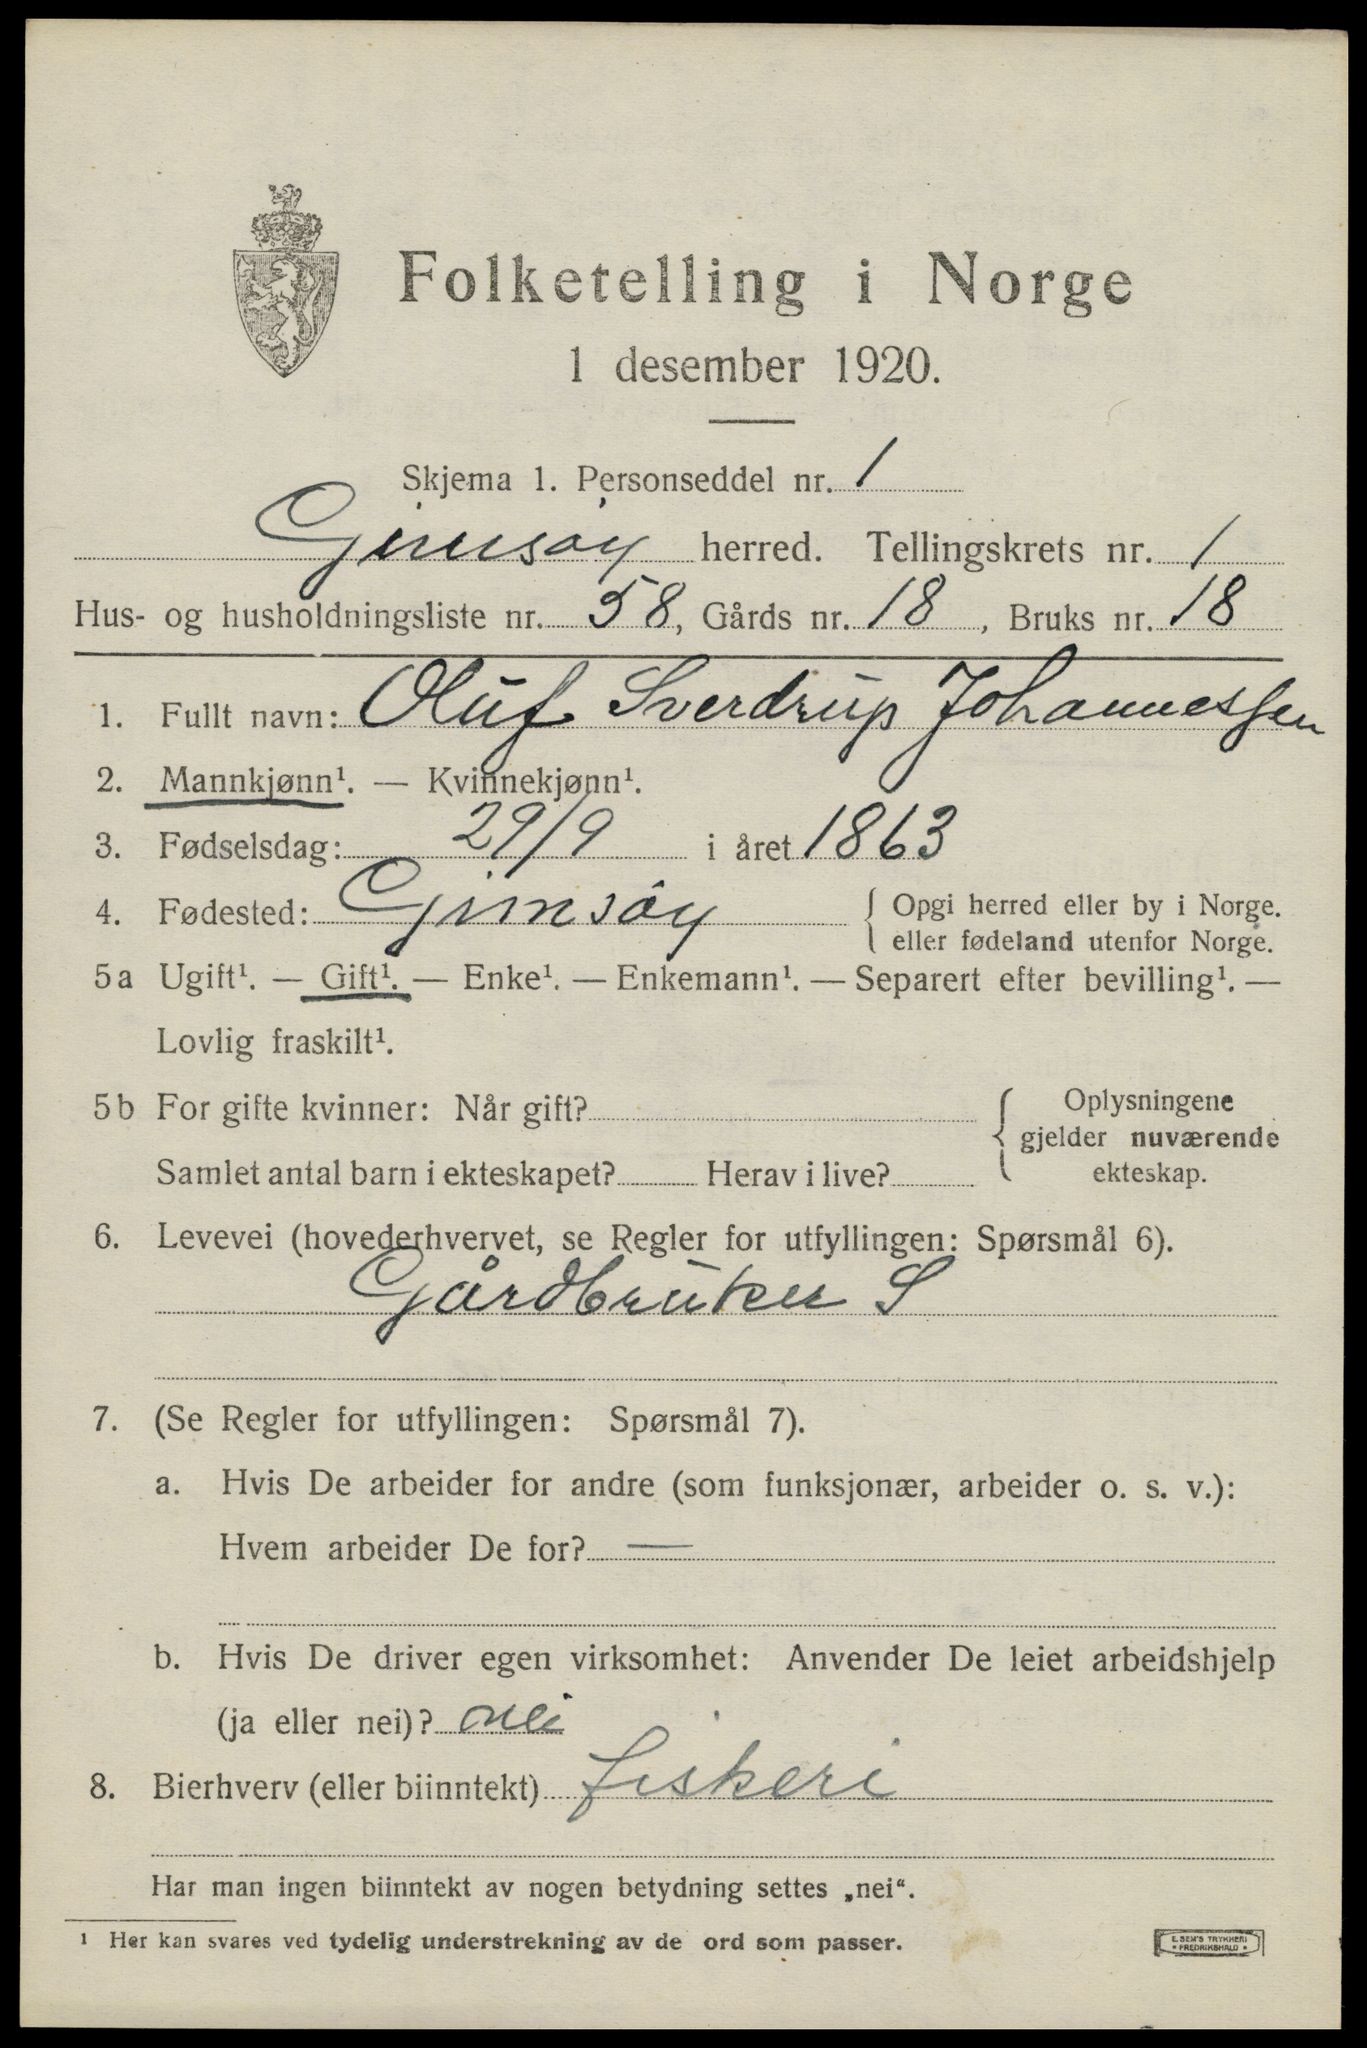 Folketelling i Norge
1 desember 1920.
Skjema 1. Personseddel nr. 1
Gimsøy herred. Tellingskrets nr. 1
Hus- og husholdningsliste nr. 58, Gårds nr. 18, Bruks nr. 18
1. Fullt navn: Oluf Sverdrup Johannessen
2. Mannkjønn¹. — Kvinnekjønn¹.
3. Fødselsdag: 29/9 i året 1863
4. Fødested: Gimsøy { Opgi herred eller by i Norge.
eller fødeland utenfor Norge.
5a Ugift¹. — Gift¹. — Enke¹. — Enkemann¹. — Separert efter bevilling¹. —
Lovlig fraskilt¹.
5b For gifte kvinner: Når gift? { Oplysningene
gjelder nuværende
Samlet antal barn i ekteskapet? Herav i live? ekteskap.
6. Levevei (hovederhvervet, se Regler for utfyllingen: Spørsmål 6).
Gårdbruker S
7. (Se Regler for utfyllingen: Spørsmål 7).
a. Hvis De arbeider for andre (som funksjonær, arbeider o. s. v.):
Hvem arbeider De for? —
b. Hvis De driver egen virksomhet: Anvender De leiet arbeidshjelp
(ja eller nei)? nei
8. Bierhverv (eller biinntekt) fiskeri
Har man ingen biinntekt av nogen betydning settes „nei“.
¹ Her kan svares ved tydelig understrekning av de ord som passer.
E. SEM'S TRYKKERI
• FREDRIKSHALD •